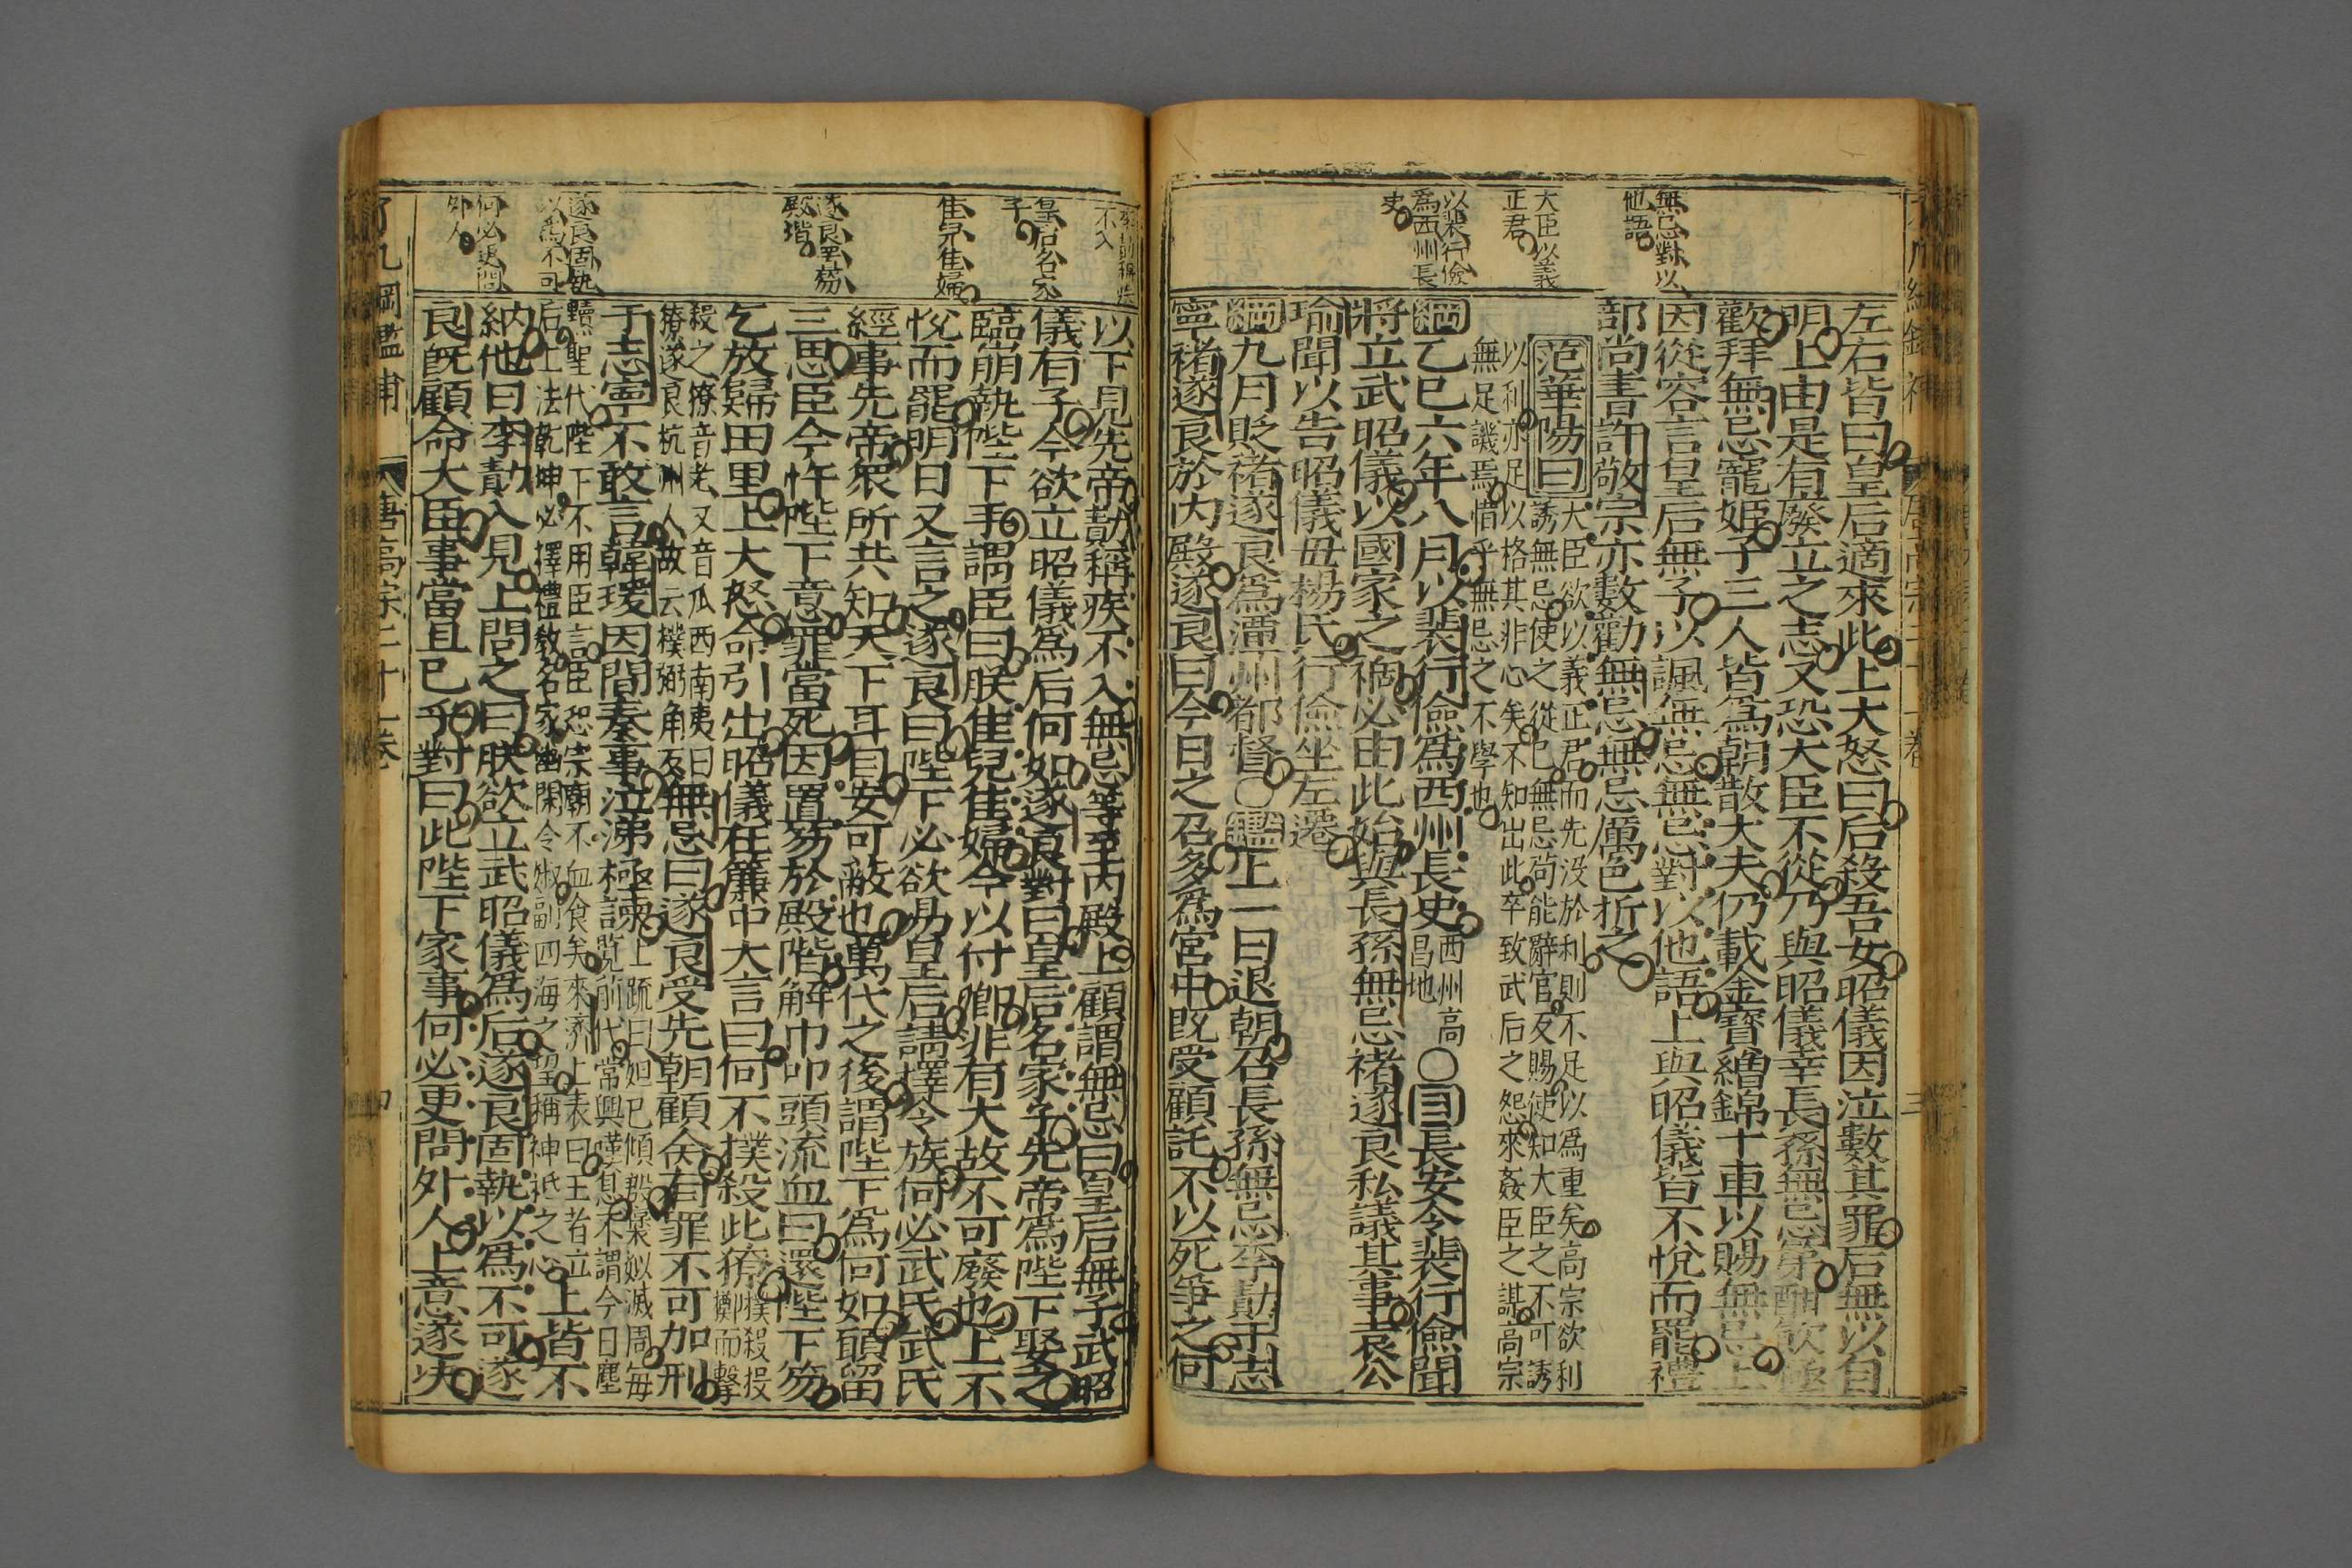 無忌對以
他語
大臣以義
正君
以裴行儉
爲西州長
史
左右皆曰皇后適來此上大怒曰后殺吾女昭儀因泣數其罪后無以自
明上由是有廢立之志又恐大臣不從乃與昭儀幸長孫無忌第酣飲極
歡拜無忌寵姫子三人皆爲朝散大夫仍載金寳繒錦十車以賜無忌上
因從容言皇后無子以諷無忌無忌對以他語上與昭儀皆不悅而罷禮
部尚書許敬宗亦數勸無忌無忌厲色折之
范華陽曰
大臣欲以義正君而先没於利則不足以爲重矣高宗欲利
誘無忌使之從已無忌尚能辭官反賜使知大臣之不可誘
以利亦足以格其非心矣不知出此卒致武后之怨來姦臣之謀高宗
無足譏焉惜乎無忌之不學也
綱乙巳六年八月以裴行儉爲西州長史
西州高
昌地
〇目長安令裴行儉聞
將立武昭儀以國家之禍必由此始與長孫無忌褚遂良私議其事袁公
瑜聞以告昭儀毋楊氏行儉坐左遷
綱九月貶褚遂良爲潭州都督〇鑑上一日退朝召長孫無忌李勣于志
寧褚遂良於内殿遂良曰今日之召多爲宮中既受顧託不以死爭之何
三
不入
皇后名家
子
隹兒隹婦
遂良畀笏
殿堦
遂良固執
以爲不可
何必更問
外人
以下見先帝勣稱疾不入無忌等至内殿上顧謂無忌曰皇后無子武昭
儀有子今欲立昭儀爲后何如遂良對曰皇后名家子先帝爲陛下娶之
臨崩執陛下手謂臣曰朕隹兒隹婦今以付卿非有大故不可廢也上不
悅而罷明日又言之遂良曰陛下必欲易皇后請擇令族何必武氏武氏
經事先帝衆所共知天下耳目安可蔽也萬代之後謂陛下爲何如願留
三思臣今忤陛下意罪當死因置笏於殿階解巾叩頭流血曰還陛下笏
乞放歸田里上大怒命引出昭儀在簾中大言曰何不撲殺此獠
撲殺投
擲而擊
殺之獠音老又音瓜西南夷曰
獠遂良杭州人故云樸弼角反
無忌曰遂良受先朝顧命有罪不可加刑
于志寧不敢言韓瑗因間奏事泣涕極諫
上疏曰妲巳傾殷襃姒滅周毎
覧前代常興嘆息不謂今日塵
黷聖代陛下不用臣言臣恐宗廟不血食矣來濟上表曰王者立
后上法乾坤必擇禮教名家幽閑令淑副四海之望稱神祇之心
上皆不
納他日李勣入見上問之曰朕欲立武昭儀爲后遂良固執以爲不可遂
良既顧命大臣事當且已乎對曰此陛下家事何必更問外人上意遂决
了凡綱鑑補
唐高宗二十一卷
四